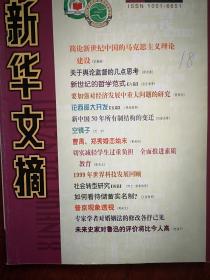 ISSN 1001-6651
新华文摘
简论新世纪中国的马克思主义理论
建设
关于舆论监督的几点思考
新世纪的哲学范式
要加强对经济发展中重大问题的研究
论西部大开发
新中国50年所有制结构的变迁
空镜子
曹禺、郑秀婚恋始末
切实减轻学生过重负担 全面推进素质
教育
1999年世界科技发展回顾
社会转型研究
如何看待储蓄实名制?
普京现象透视
专家学者对婚姻法的修改各抒己见
未来史家对鲁迅的评价将比今人高